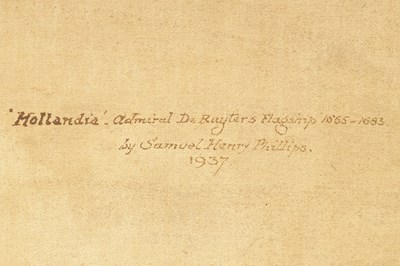 'Hollandia'. Admiral De Ruyters Flagship 1665-1683
by Samuel Henry Phillips.
1937